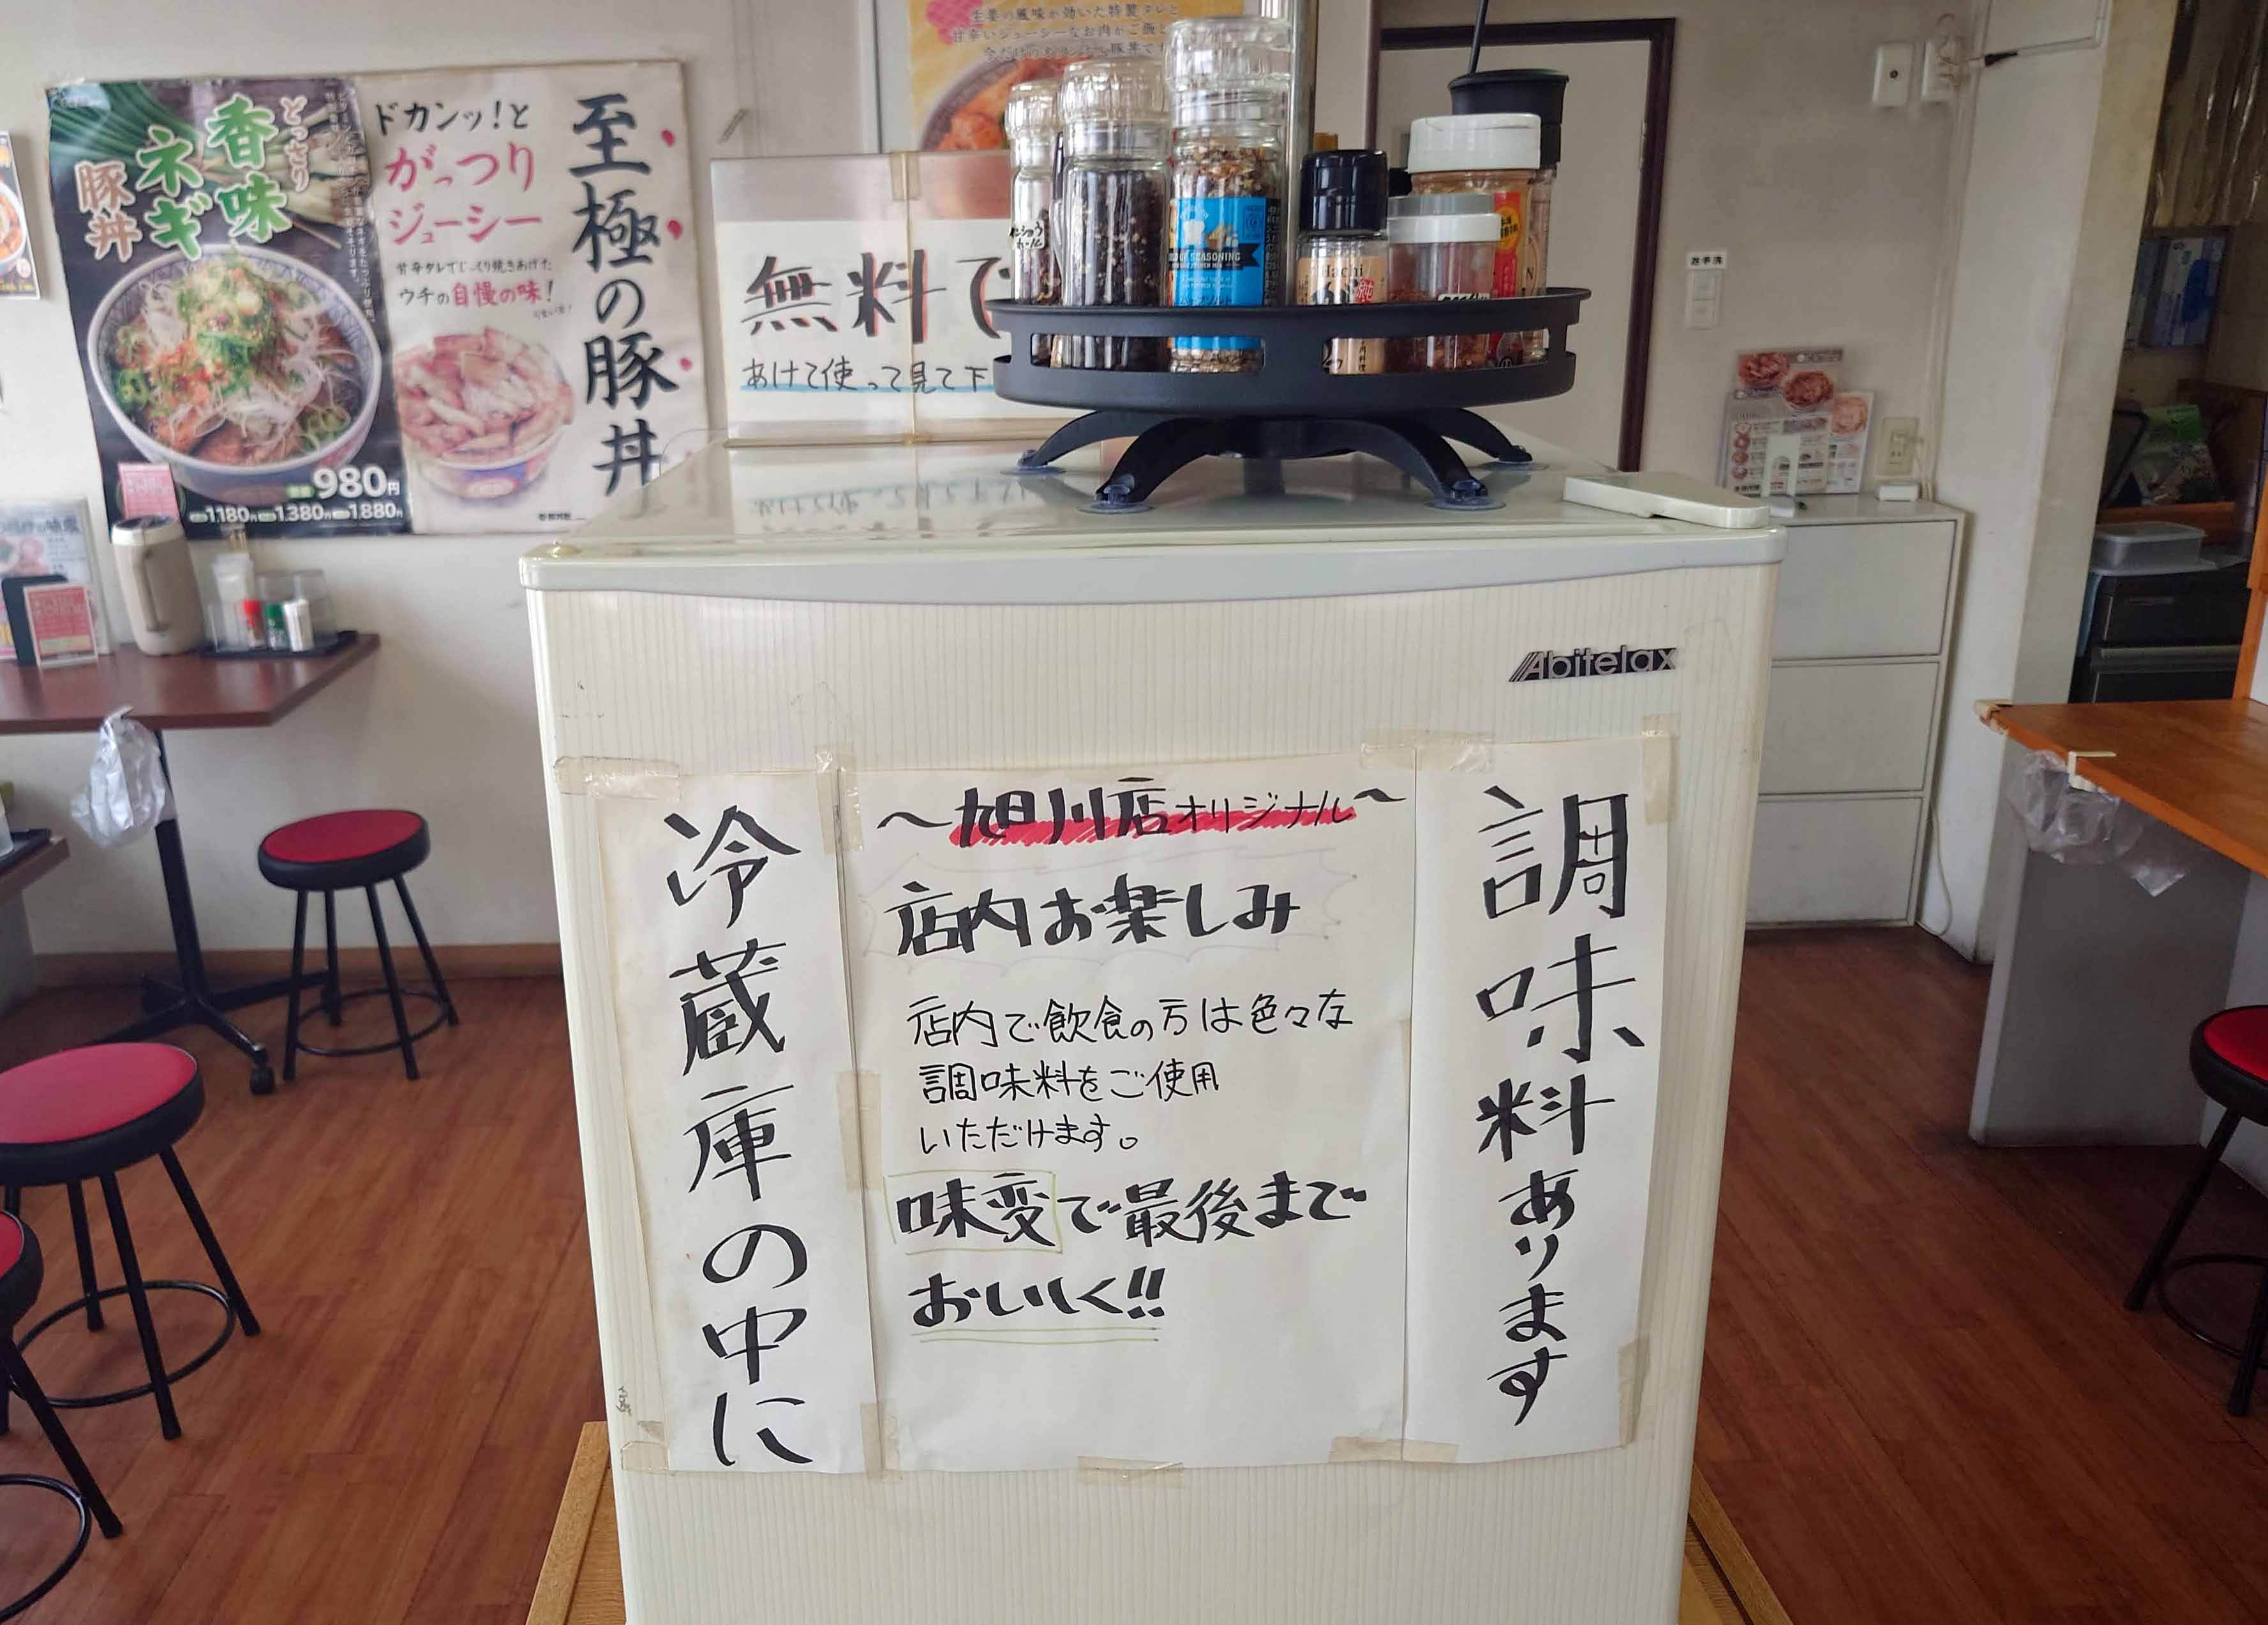 どっさり
香味
ネギ
豚丼
980円
1,180円 1,380円 1,880円
至極の豚丼
ドカンッ!と
がっつり
ジューシー
ウチの自慢の味!
生姜の風味が効いた特製タレと
無料で
あけて使って見て下
SEASONING
Hachi
Abitelax
調味料あります
～旭川店オリジナル～
店内お楽しみ
店内で飲食の方は色々な
調味料をご使用
いただけます。
味変で最後まで
おいしく!!
冷蔵庫の中に
お手洗